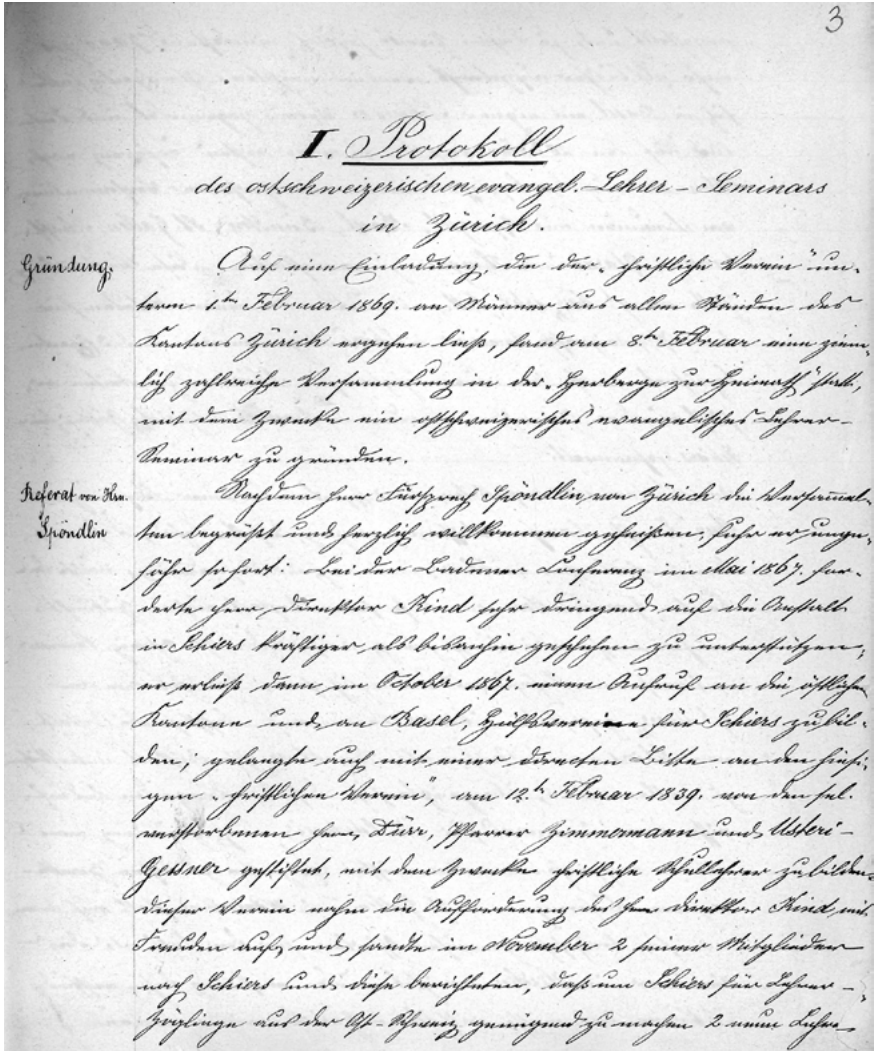 3
I. Protokoll
des ostschweizerischen evangel. Lehrer-Seminars
in Zürich.
Gründung.
Auf eine Einladung, die der „christliche Verein" un-
term 1.ten Februar 1869. an Männer aus allen Ständen des
Kantons Zürich ergehen ließ, fand am 8.ten Februar eine ziem-
lich zahlreiche Versammlung in der „Herberge zur Heimath" statt,
mit dem Zwecke ein ostschweizerisches evangelisches Lehrer-
Seminar zu gründen.
Referat von Hrn.
Spöndlin
Nachdem Herr Fürsprech Spöndlin, von Zürich die Versammel-
ten begrüßt und herzlich willkommen geheißen, fuhr er unge-
fähr so fort: Bei der Badener Conferenz im Mai 1867. for-
derte Herr Direktor Kind sehr dringend auf die Anstalt
in Schiers kräftiger, als bisanhin geschehen zu unterstützen;
er erließ dann im October 1867. einen Aufruf an die östlichen
Kantone und an Basel, Hülfsvereine für Schiers zu bil-
den; gelangte auch mit einer directen Bitte an den hiesi-
gen „christlichen Verein", am 12.ten Februar 1839. von den sel.
verstorbenen Herrn Dürr, Pfarrer Zimmermann und Usteri-
Gessner gestiftet, mit dem Zwecke christliche Schullehrer zu bilden.
Dieser Verein nahm die Aufforderung des Herrn Direktor Kind, mit
Freuden auf, und sandte im November 2 seiner Mitglieder
nach Schiers und diese berichteten, daß um Schiers für Lehrer-
Zöglinge aus der Ost-Schweiz genügend zu machen 2 neue Lehr-